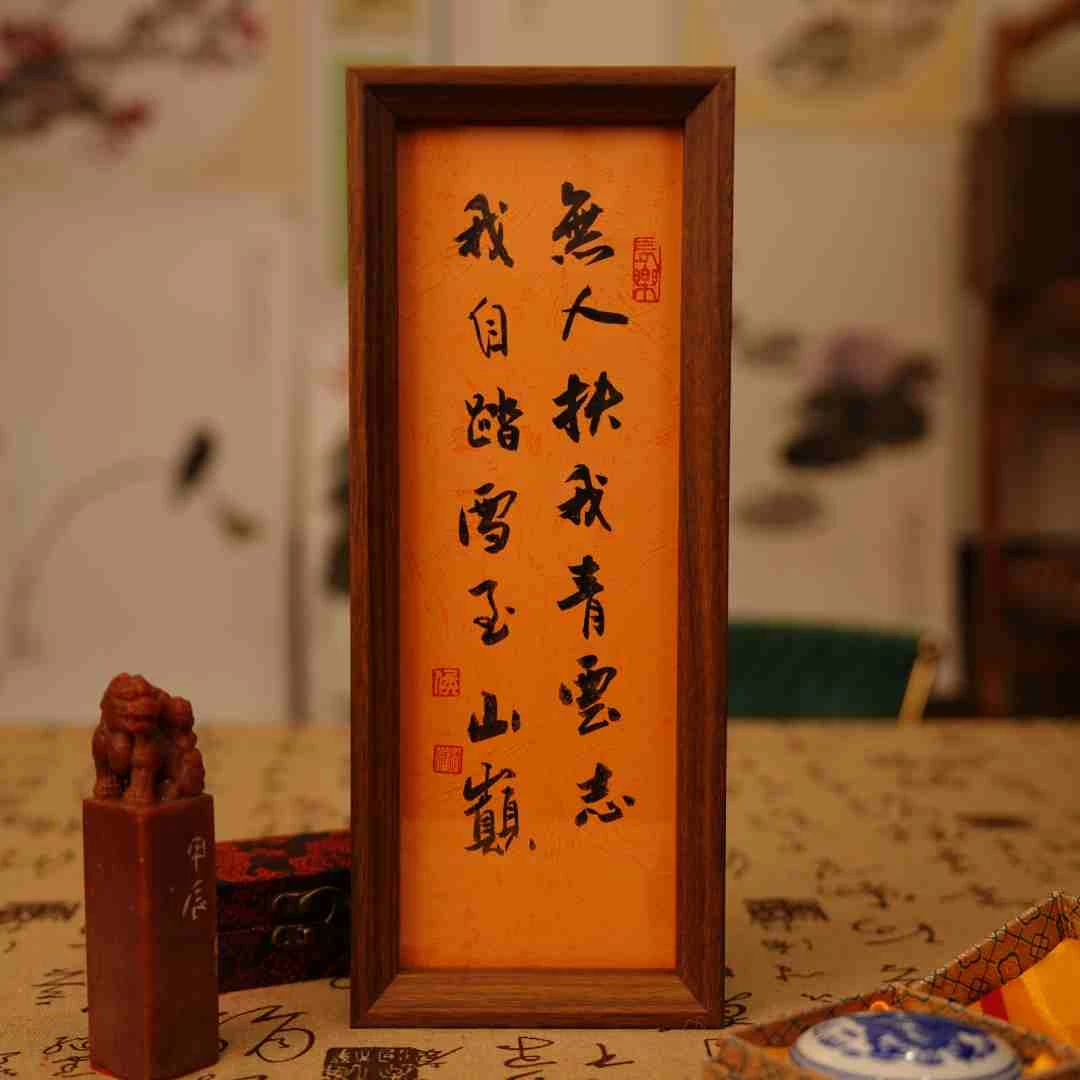 無人扶我青雲志
我自踏雪至山巔
甲辰